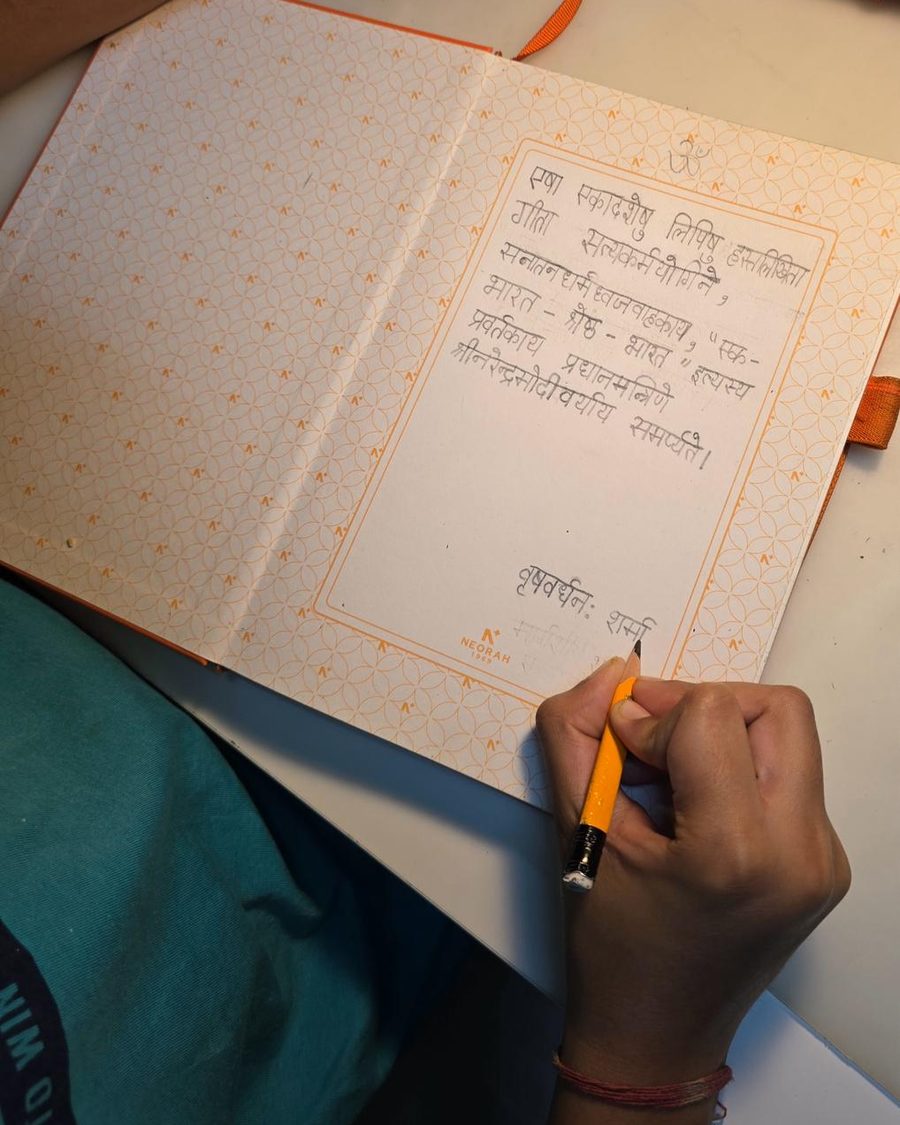 ॐ
एषा एकादशेषु लिपिषु हस्तलिखिता
गीता सत्यकर्मयोगिने,
सनातनधर्मध्वजवाहकाय, "एक-
भारत - श्रेष्ठ - भारत" इत्यस्य
प्रवर्तकाय प्रधानमन्त्रिणे
श्रीनरेन्द्रमोदीवर्याय समर्प्यते।
वृषवर्धनः शर्मा
NEORAH
1969
WIN